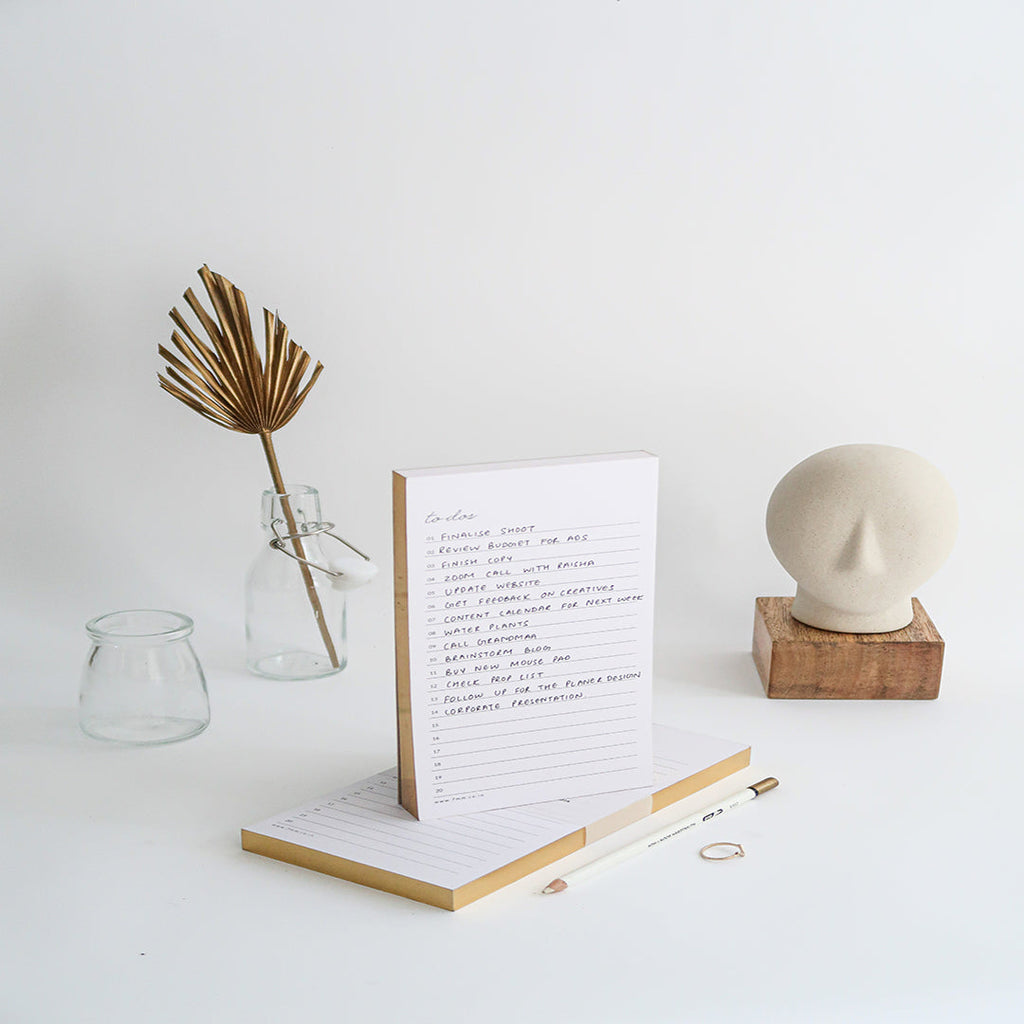 to dos
01 FINALISE SHOOT
02 REVIEW BUDGET FOR ADS
03 FINISH COPY
04 ZOOM CALL WITH RAISHA
05 UPDATE WEBSITE
06 GET FEEDBACK ON CREATIVES
07 CONTENT CALENDAR FOR NEXT WEEK
08 WATER PLANTS
09 CALL GRANDMAA
10 BRAINSTORM BLOG
11 BUY NEW MOUSE PAD
12 CHECK PROP LIST
13 FOLLOW UP FOR THE PLANER DESIGN
14 CORPORATE PRESENTATION.
15
16
17
18
19
20